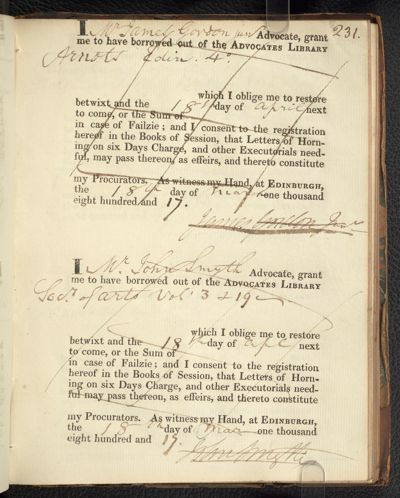 231.
I Mr James Gordon junr Advocate, grant
me to have borrowed out of the ADVOCATES LIBRARY
Arnots Edinr. 4o.
which I oblige me to restore
betwixt and the 18th day of april next
to come, or the Sum of
in case of Failzie; and I consent to the registration
hereof in the Books of Session, that Letters of Horn-
ing on six Days Charge, and other Executorials need-
ful, may pass thereon, as effeirs, and thereto constitute
my Procurators. As witness my Hand, at EDINBURGH,
the 18th day of March one thousand
eight hundred and 17.
James Gordon Junr
I Mr. John Smyth Advocate, grant
me to have borrowed out of the ADVOCATES LIBRARY
Socy. of arts Vol 3 & 19
which I oblige me to restore
betwixt and the 18th day of apl next
to come, or the Sum of
in case of Failzie; and I consent to the registration
hereof in the Books of Session, that Letters of Horn-
ing on six Days Charge, and other Executorials need-
ful may pass thereon, as effeirs, and thereto constitute
my Procurators. As witness my Hand, at EDINBURGH,
the 18th day of Mar one thousand
eight hundred and 17
John Smyth